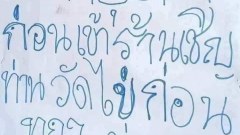 ก่อนเข้าร้านเชิญ
ท่านวัดไข้ก่อน